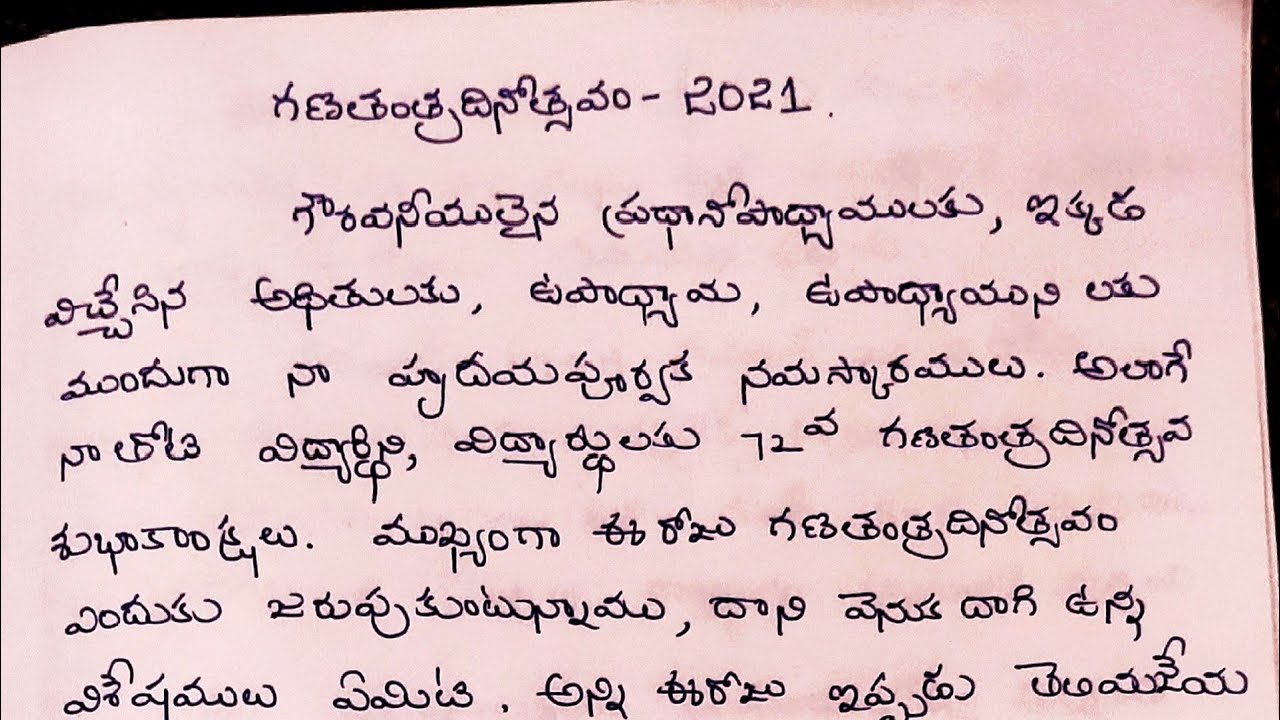 గణతంత్రదినోత్సవం - 2021.
గౌరవనీయులైన ప్రధానోపాధ్యాములకు, ఇక్కడ
విచ్చేసిన అథితులకు, ఉపాధ్యామ, ఉపాధ్యాయుని లకు
ముందుగా నా హృదయపూర్వక నమస్కారములు. అలాగే
నా తోటి విద్యార్థిని, విద్యార్థులకు 72వ గణతంత్రదినోత్సవ
శుభాకాంక్షలు. ముఖ్యంగా ఈ రోజు గణతంత్రదినోత్సవం
ఎందుకు జరుపుకుంటున్నాము, దాని వెనుక దాగి ఉన్న
విశేషములు ఏమిటి. అన్ని ఈరోజు ఇప్పుడు తెలియజేయ